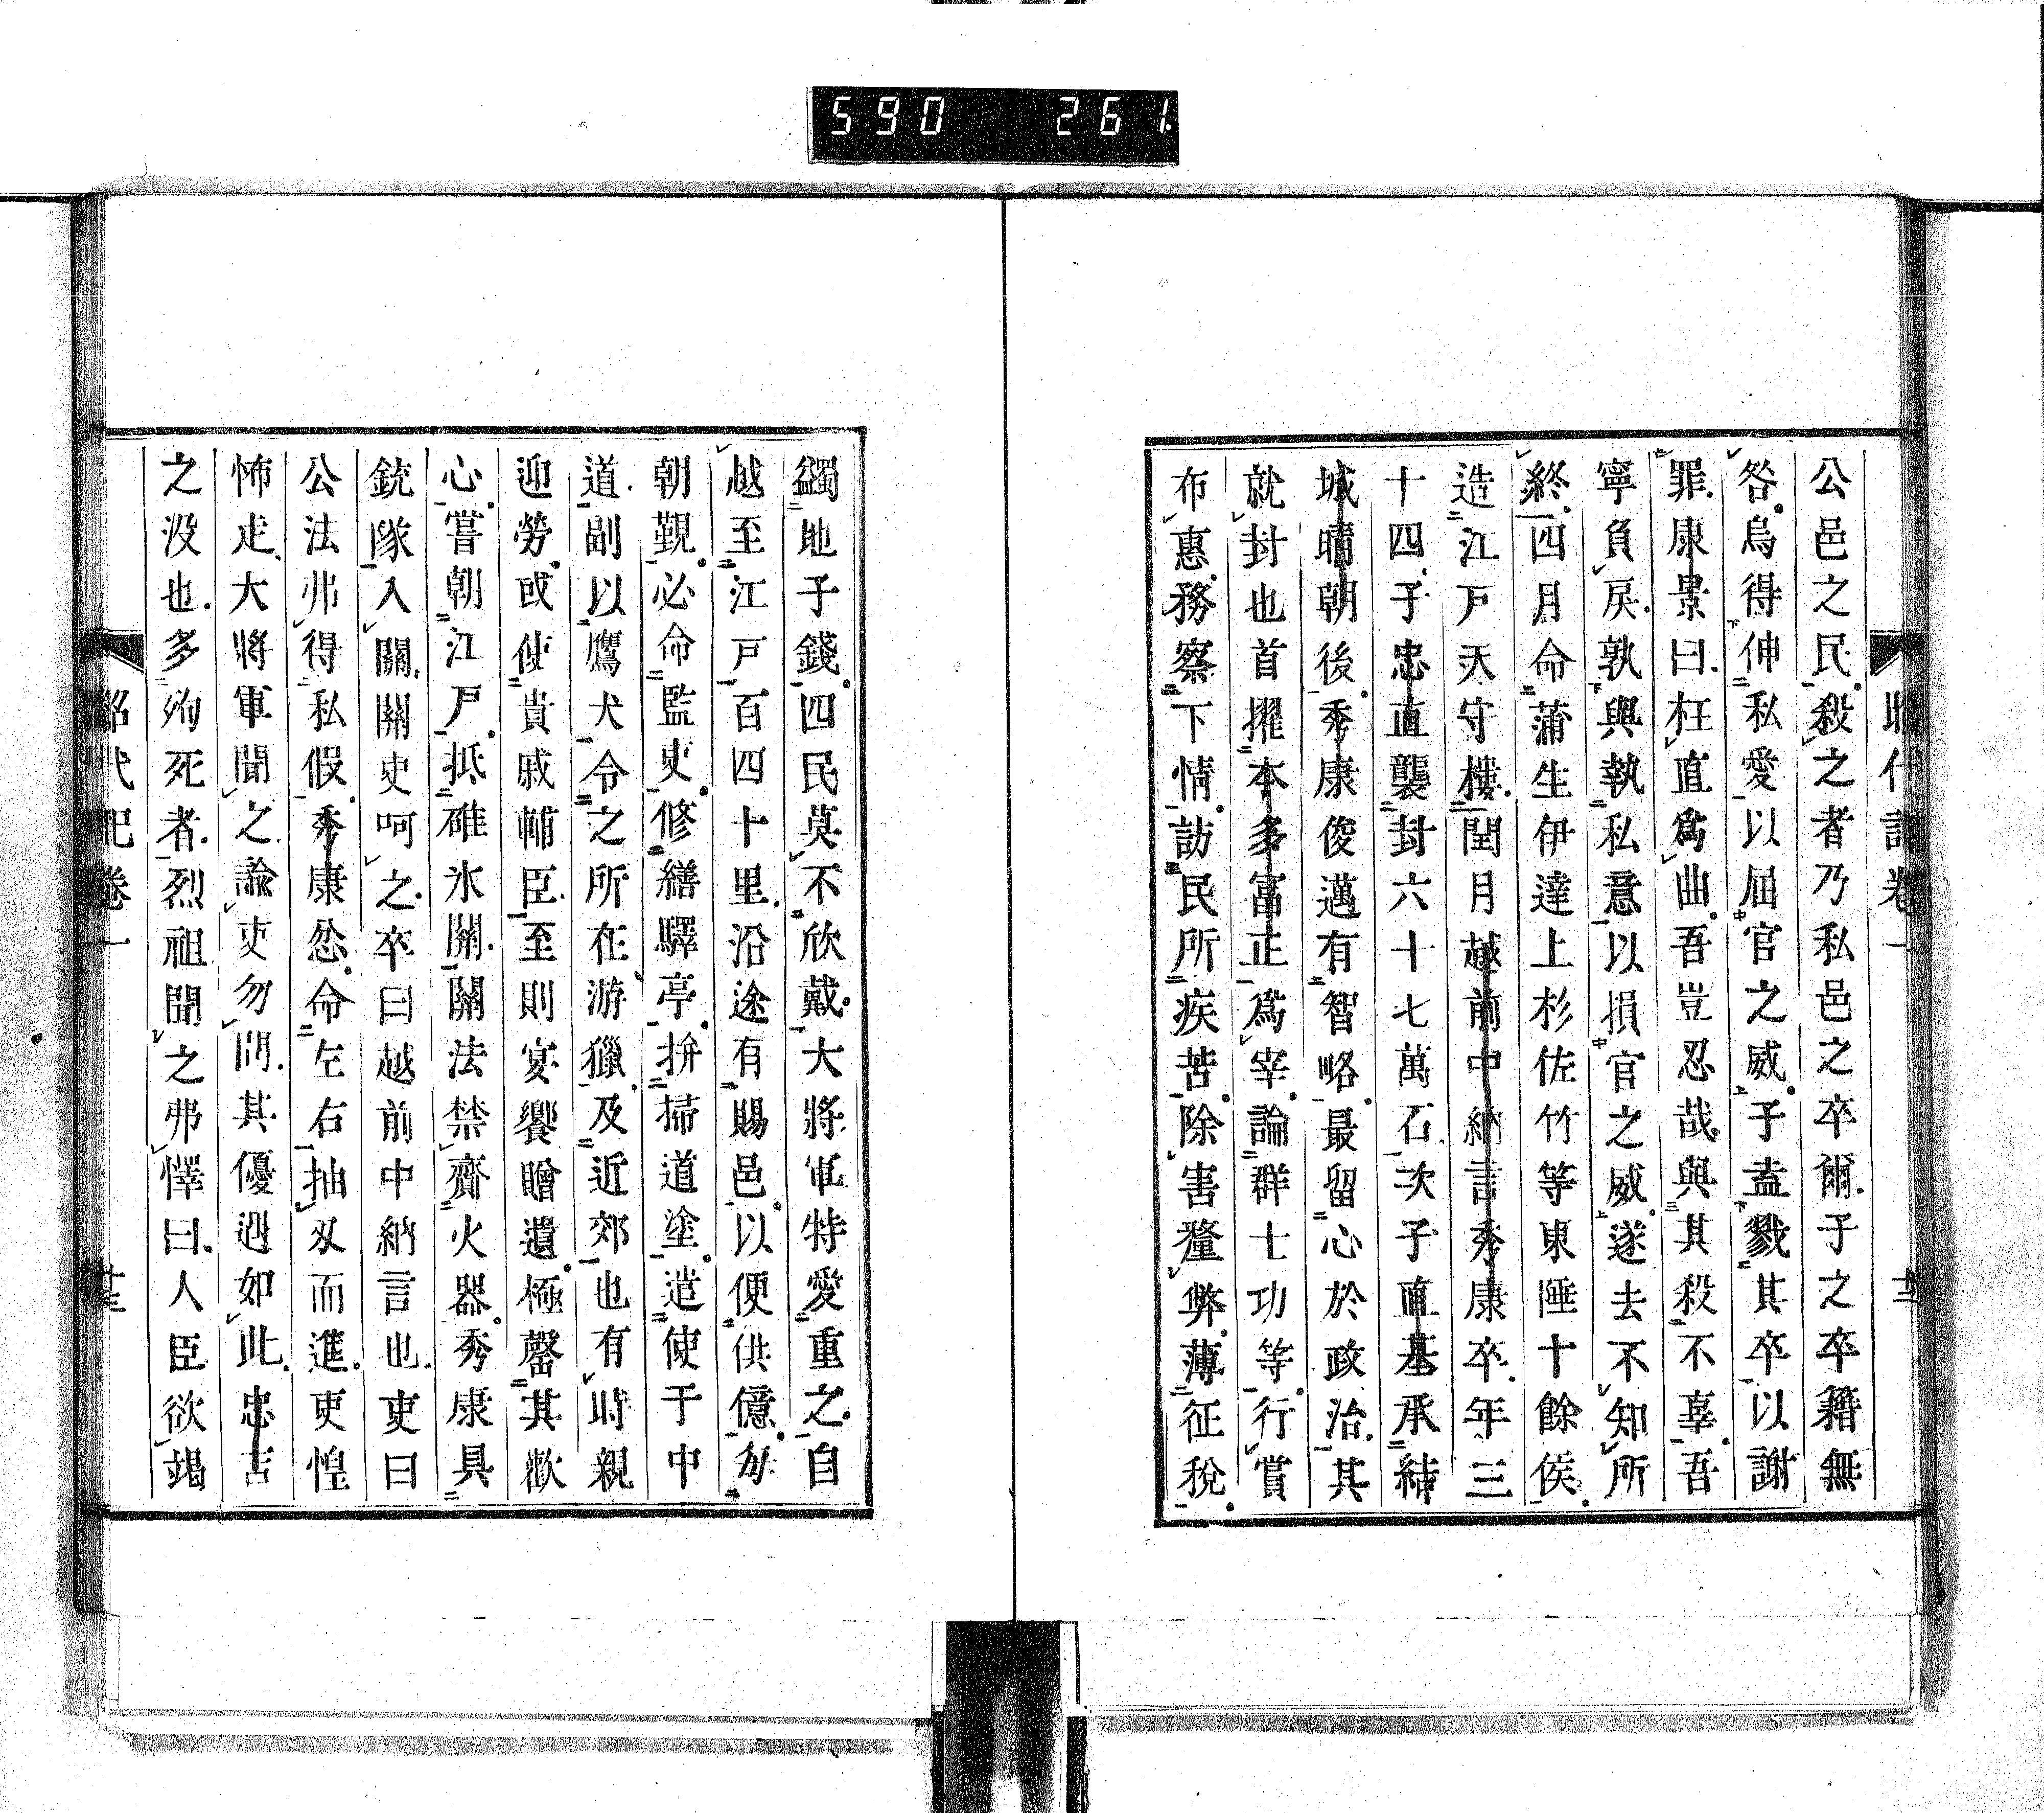 590 261
昭代記卷一
公邑之民殺之者乃私邑之卒爾子之卒籍無
咎烏得伸私愛以屈官之威子盍戮其卒以謝
罪康景曰枉直爲曲吾豈忍哉與其殺不辜吾
寧負戻孰與執私意以損官之威遂去不知所
終四月命蒲生伊達上杉佐竹等東陲十餘侯
造江戸天守樓閏月越前中納言秀康卒年三
十四子忠直襲封六十七萬石次子直基承結
城晴朝後秀康俊邁有智略最留心於政治其
就封也首擢本多富正爲宰論群士功等行賞
布惠務察下情訪民所疾苦除害釐弊薄征稅
蠲地子錢四民莫不欣戴大將軍特愛重之自
越至江戸百四十里沿途有賜邑以便供億每
朝覲必命監吏修繕驛亭拚掃道塗遣使于中
道副以鷹犬令之所在游獵及近郊也有時親
迎勞或使貴戚輔臣至則宴饗贈遺極罄其歡
心嘗朝江戸抵碓氷關關法禁齎火器秀康具
銃隊入關關吏呵之卒曰越前中納言也吏曰
公法弗得私假秀康忿命左右抽刄而進吏惶
怖走大將軍聞之諭吏勿問其優遇如此忠吉
之沒也多殉死者烈祖聞之弗懌曰人臣欲竭
昭代記卷一